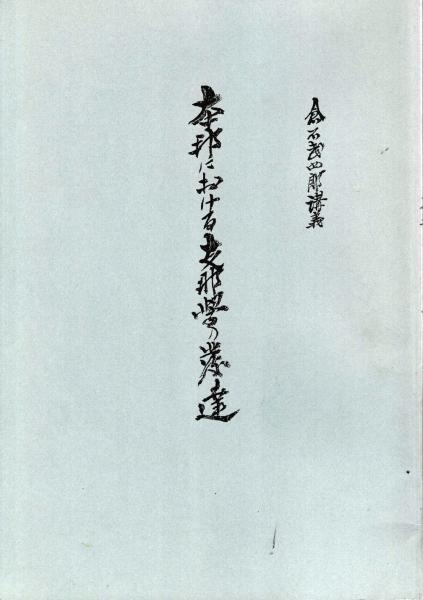 倉石武四郎講義
本邦における支那学の発達